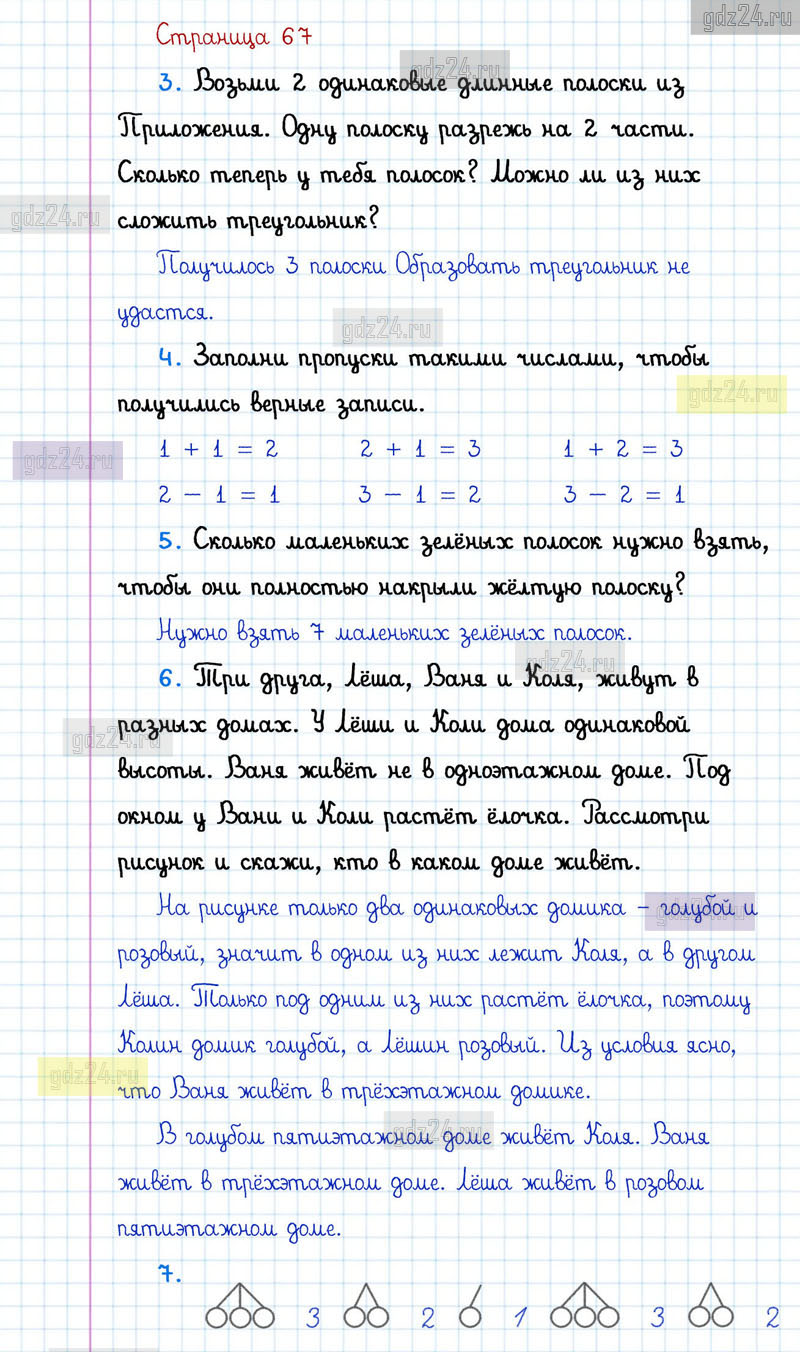 gdz24.ru
Страница 67
gdz24.ru
3. Возьми 2 одинаковые длинные полоски из
Приложения. Одну полоску разрежь на 2 части.
Сколько теперь у тебя полосок? Можно ли из них
gdz24.ru
сложить треугольник?
Получилось 3 полоски Образовать треугольник не
удастся.
gdz24.ru
4. Заполни пропуски такими числами, чтобы
gdz24.ru
получились верные записи.
1 + 1 = 2 2 + 1 = 3 1 + 2 = 3
gdz24.ru
2 - 1 = 1 3 - 1 = 2 3 - 2 = 1
5. Сколько маленьких зелёных полосок нужно взять,
чтобы они полностью накрыли жёлтую полоску?
Нужно взять 7 маленьких зелёных полосок.
gdz24.ru
6. Три друга, Лёша, Ваня и Коля, живут в
разных домах. У Лёши и Коли дома одинаковой
gdz24.ru
высоты. Ваня живёт не в одноэтажном доме. Под
окном у Вани и Коли растёт ёлочка. Рассмотри
рисунок и скажи, кто в каком доме живёт.
На рисунке только два одинаковых домика - голубой и
gdz24.ru
розовый, значит в одном из них лежит Коля, а в другом
Лёша. Только под одним из них растёт ёлочка, поэтому
Колин домик голубой, а Лёшин розовый. Из условия ясно,
gdz24.ru
что Ваня живёт в трёхэтажном домике.
В голубом пятиэтажном доме живёт Коля. Ваня
gdz24.ru
живёт в трёхэтажном доме. Лёша живёт в розовом
пятиэтажном доме.
7.
3 2 1 3 2